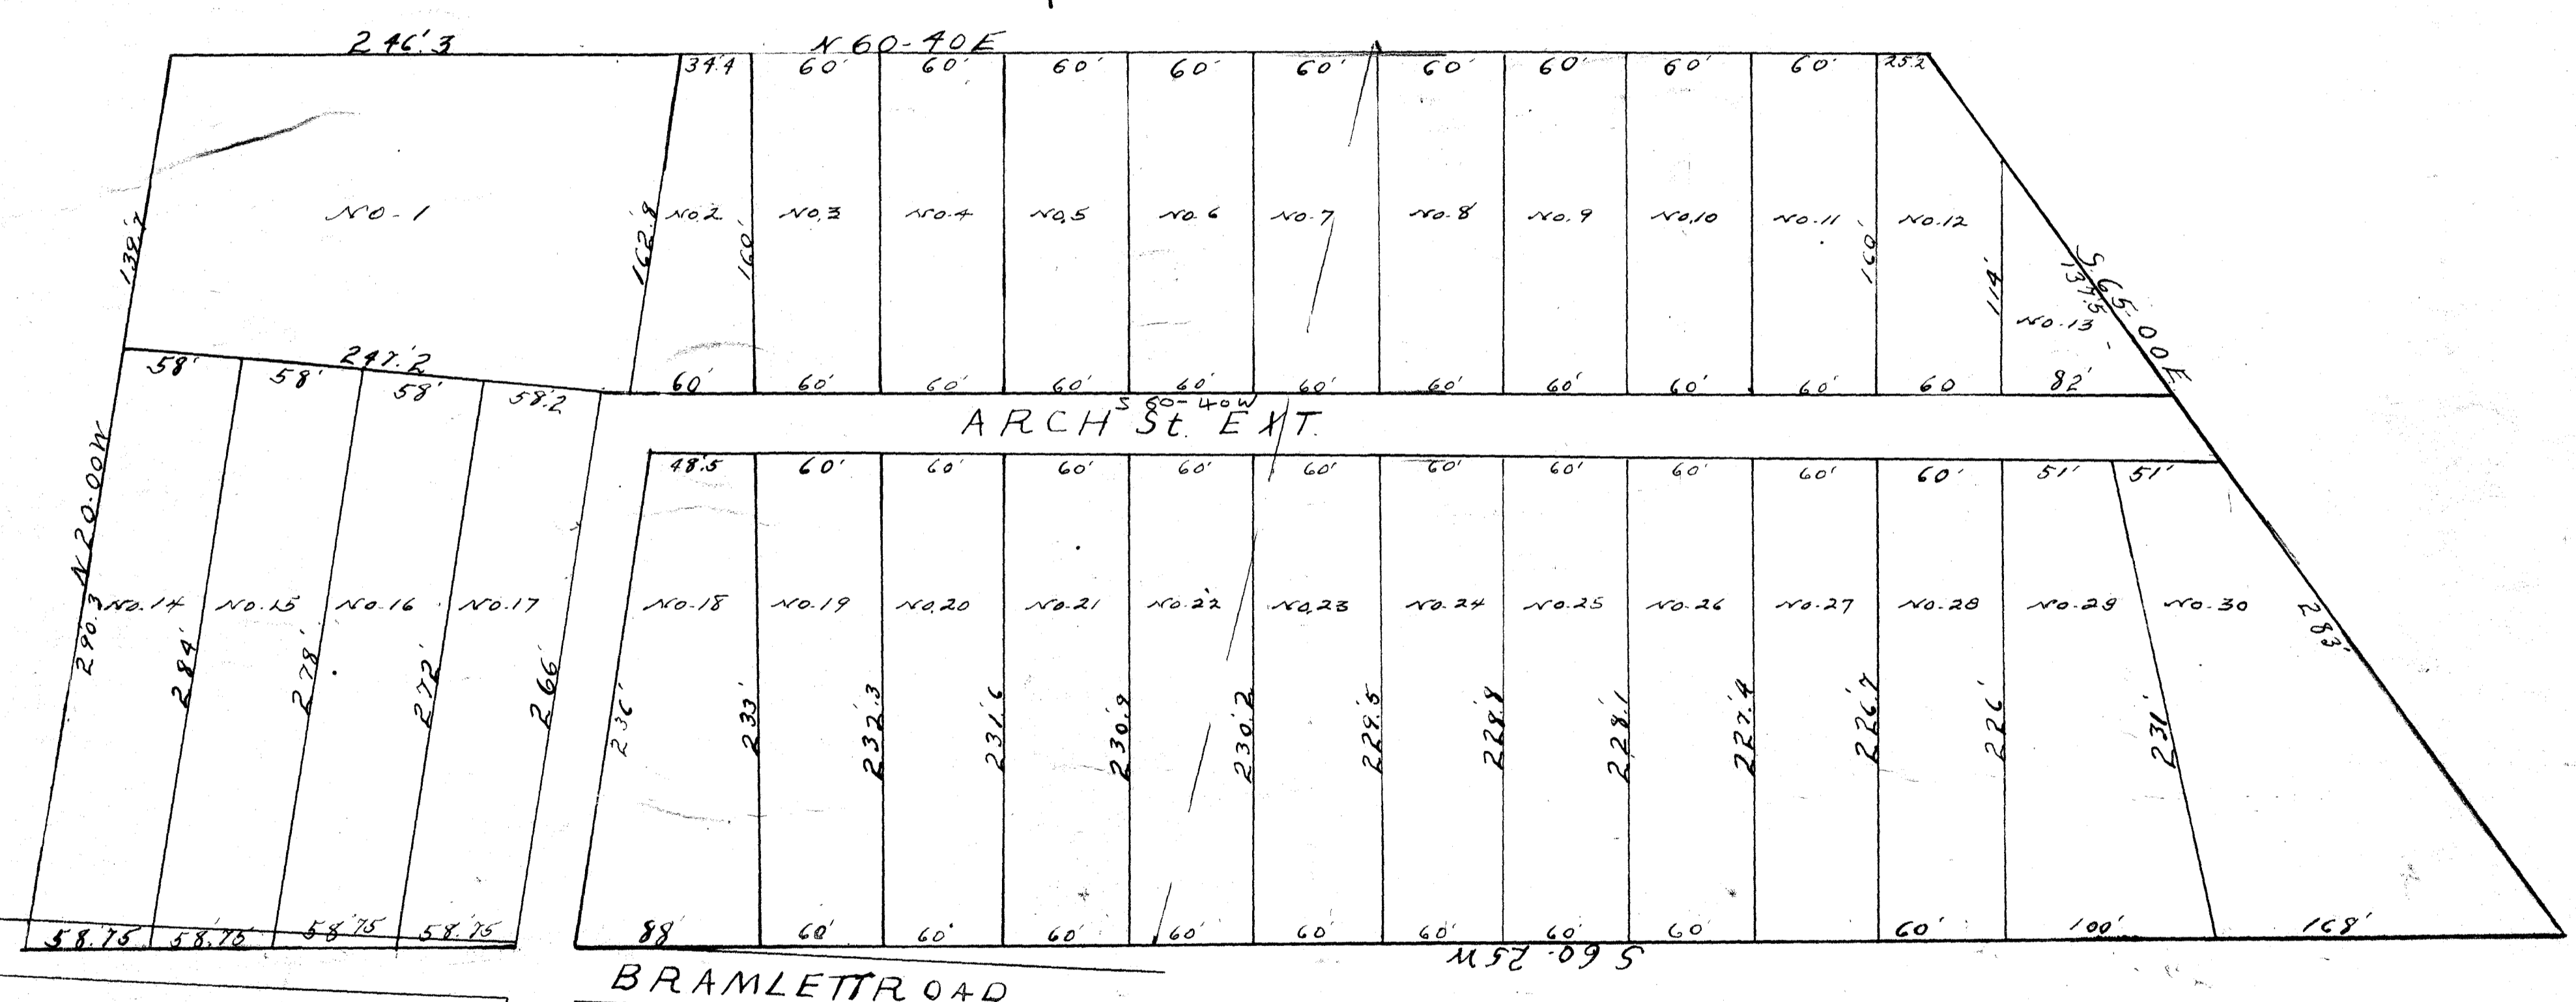 246.'3 N 60-40E
34.4 60' 60' 60' 60' 60' 60' 60' 60' 60' 25.2
NO-1 NO.2 NO.3 NO.4 NO.5 NO.6 NO.7 NO.8 NO.9 NO.10 NO.11 NO.12
162.'9 160' 160' 114'
S.65-00E
137.'5
NO.13
247.'2
58' 58' 58' 58.2
60' 60' 60' 60' 60' 60' 60' 60' 60' 60' 60 82'
S 60-40W
ARCH St. EXT.
48.'5 60' 60' 60' 60' 60' 60' 60' 60' 60' 60' 51' 51'
N 20-00W
290.'3
NO.14 NO.15 NO.16 NO.17 NO.18 NO.19 NO.20 NO.21 NO.22 NO.23 NO.24 NO.25 NO.26 NO.27 NO.28 NO.29 NO.30
283'
284' 278' 272' 266' 236' 233' 232.'3 231.'6 230.'9 230.'2 229.'5 228.'8 228.'1 227.'4 226.'7 226' 231'
58.75 58.'75 58.'75 58.'75 88' 60' 60' 60' 60' 60' 60' 60' 60' 60' 100' 168'
S 60-25W
BRAMLETT ROAD